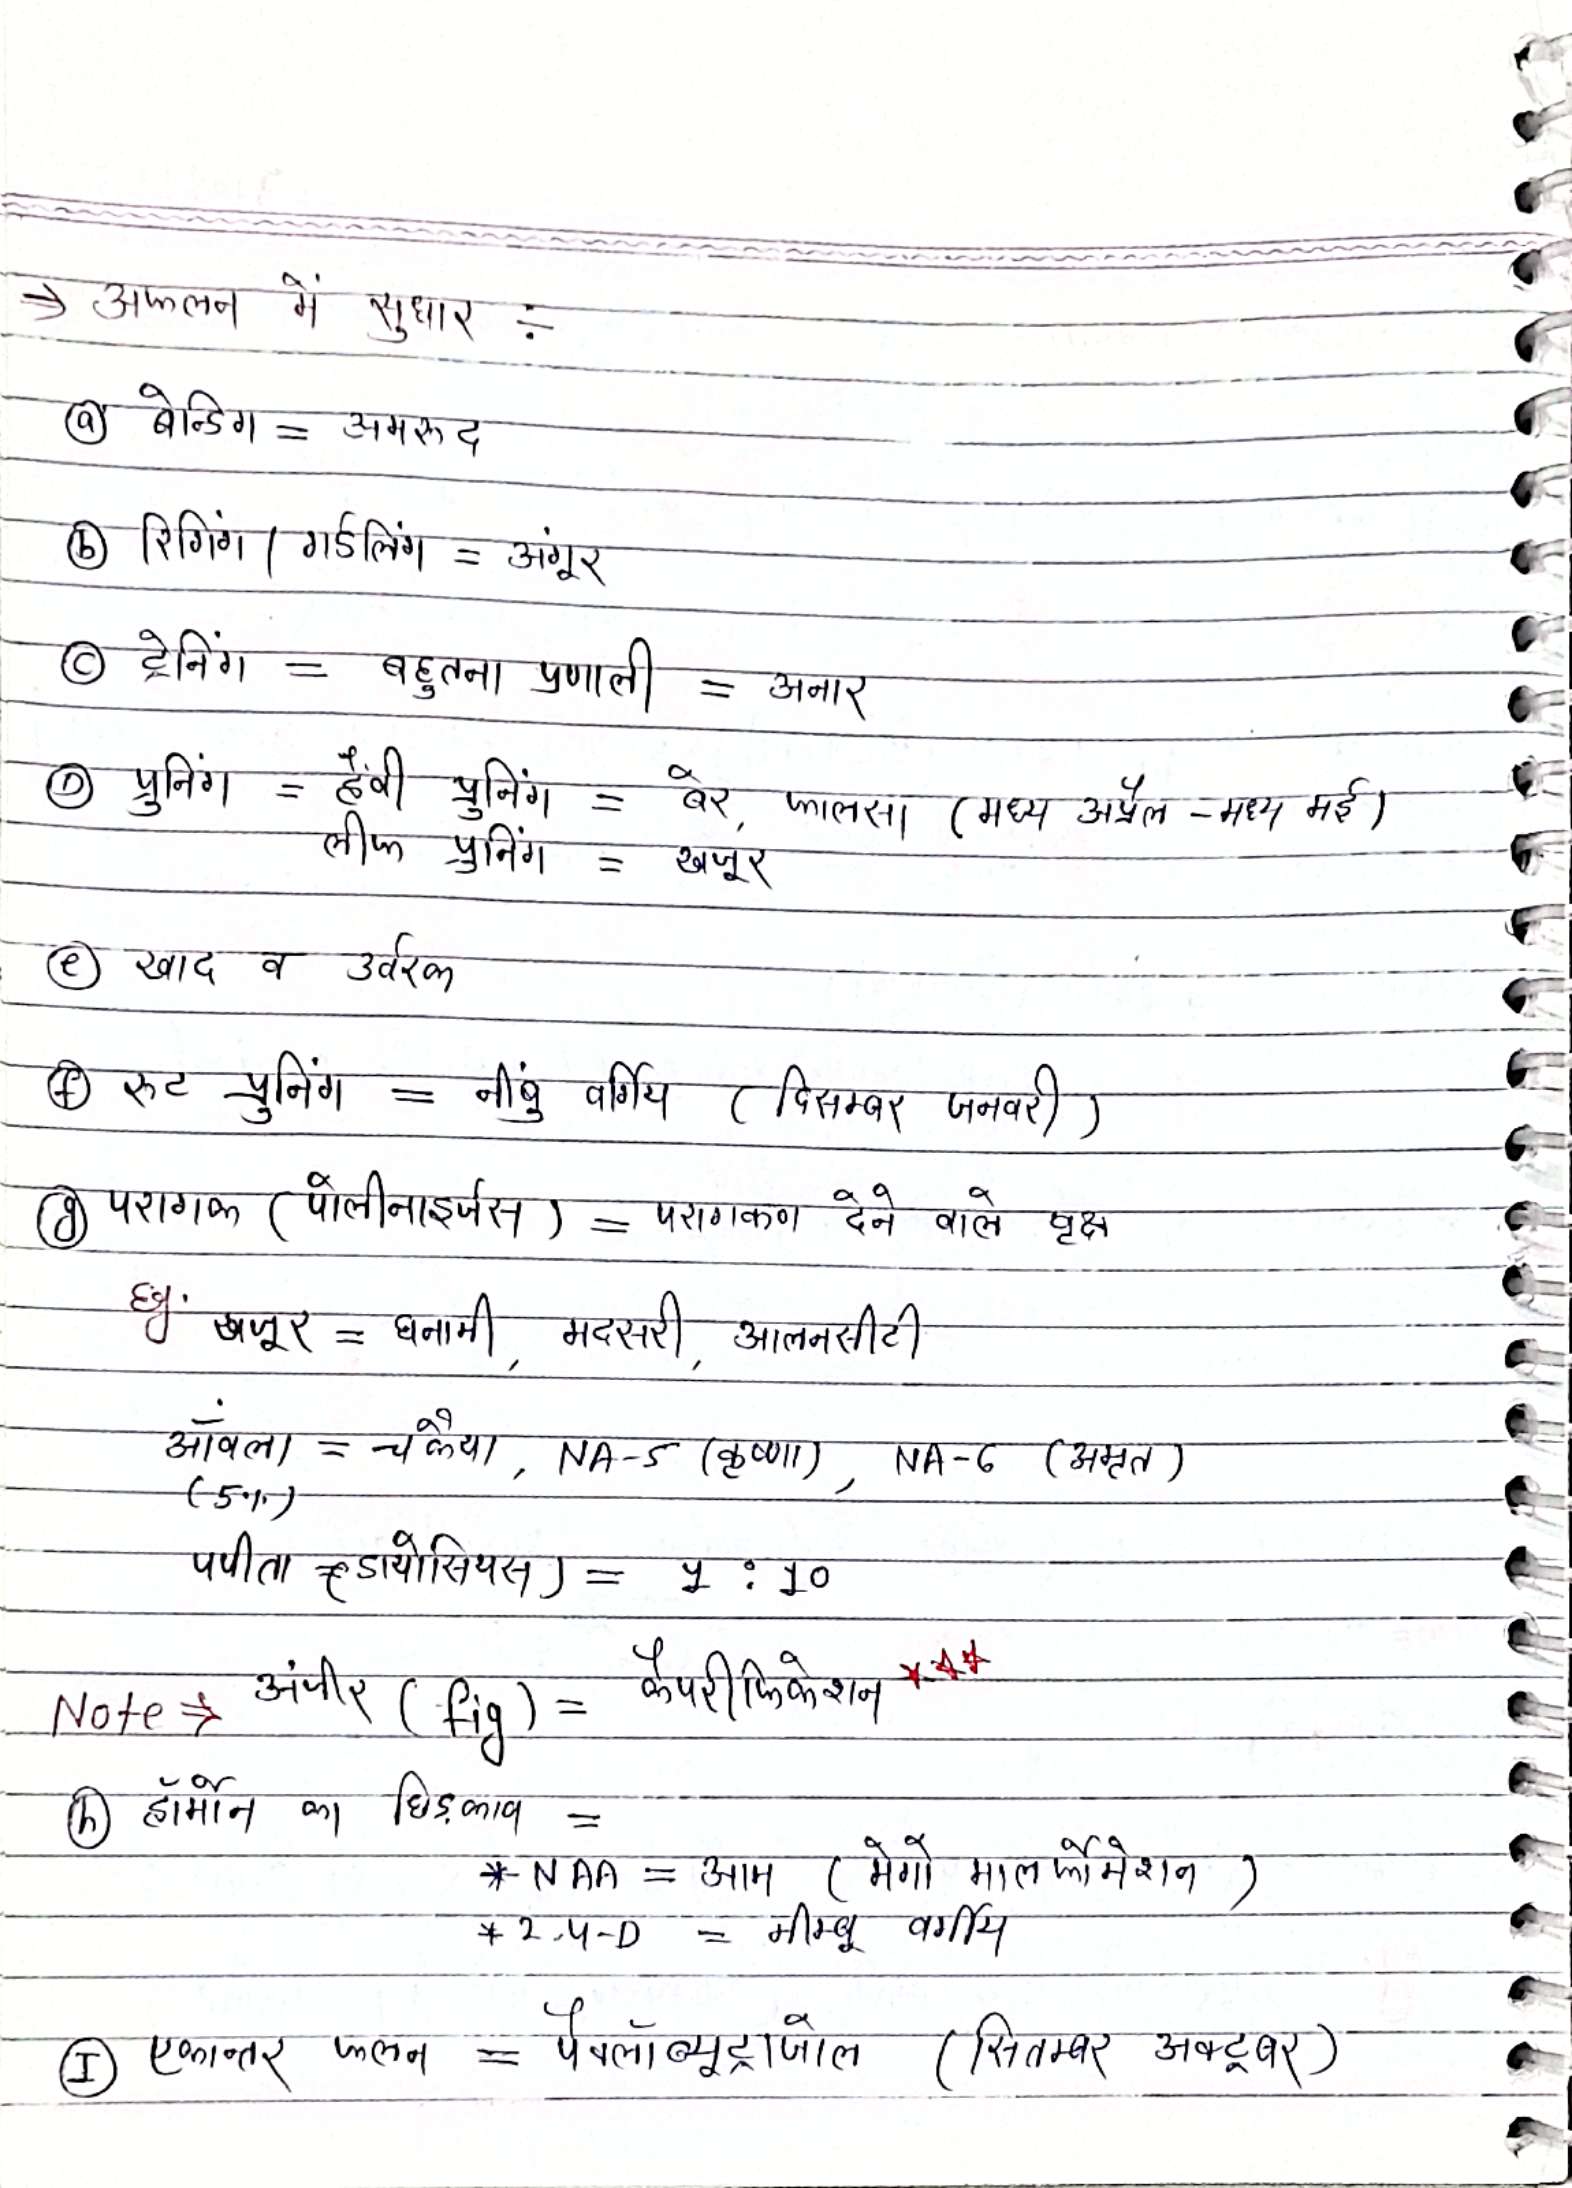 → अफलन में सुधार ÷
(a) बेन्डिग = अमरूद
(b) रिगिंग / गर्डलिंग = अंगूर
(c) ट्रेनिंग = बहुतना प्रणाली = अनार
(D) प्रुनिंग = हैवी प्रुनिंग = बेर, फालसा (मध्य अप्रैल - मध्य मई)
लीफ प्रुनिंग = खजूर
(e) खाद व उर्वरक
(f) रूट प्रुनिंग = नींबु वर्गिय (दिसम्बर जनवरी)
(g) परागक (पोलीनाइर्जस) = परागकण देने वाले वृक्ष
खजूर = घनामी, मदसरी, आलनसीटी
आँवला = चकैया, NA-5 (कृष्णा), NA-6 (अमृत)
(5%)
पपीता (डायोसियस) = 1 : 10
Note → अंजीर (fig) = कैपरीफिकेशन ***
(h) हॉर्मोन का छिड़काव =
* NAA = आम (मेगो मालर्फोमेशन)
* 2.4-D = नीम्बू वर्गीय
(I) एकान्तर फलन = पैक्लॉब्यूट्राजोल (सितम्बर अक्टूबर)